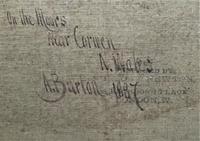 On the Moors
Near Corwen
N. Wales
A. Burton 1887